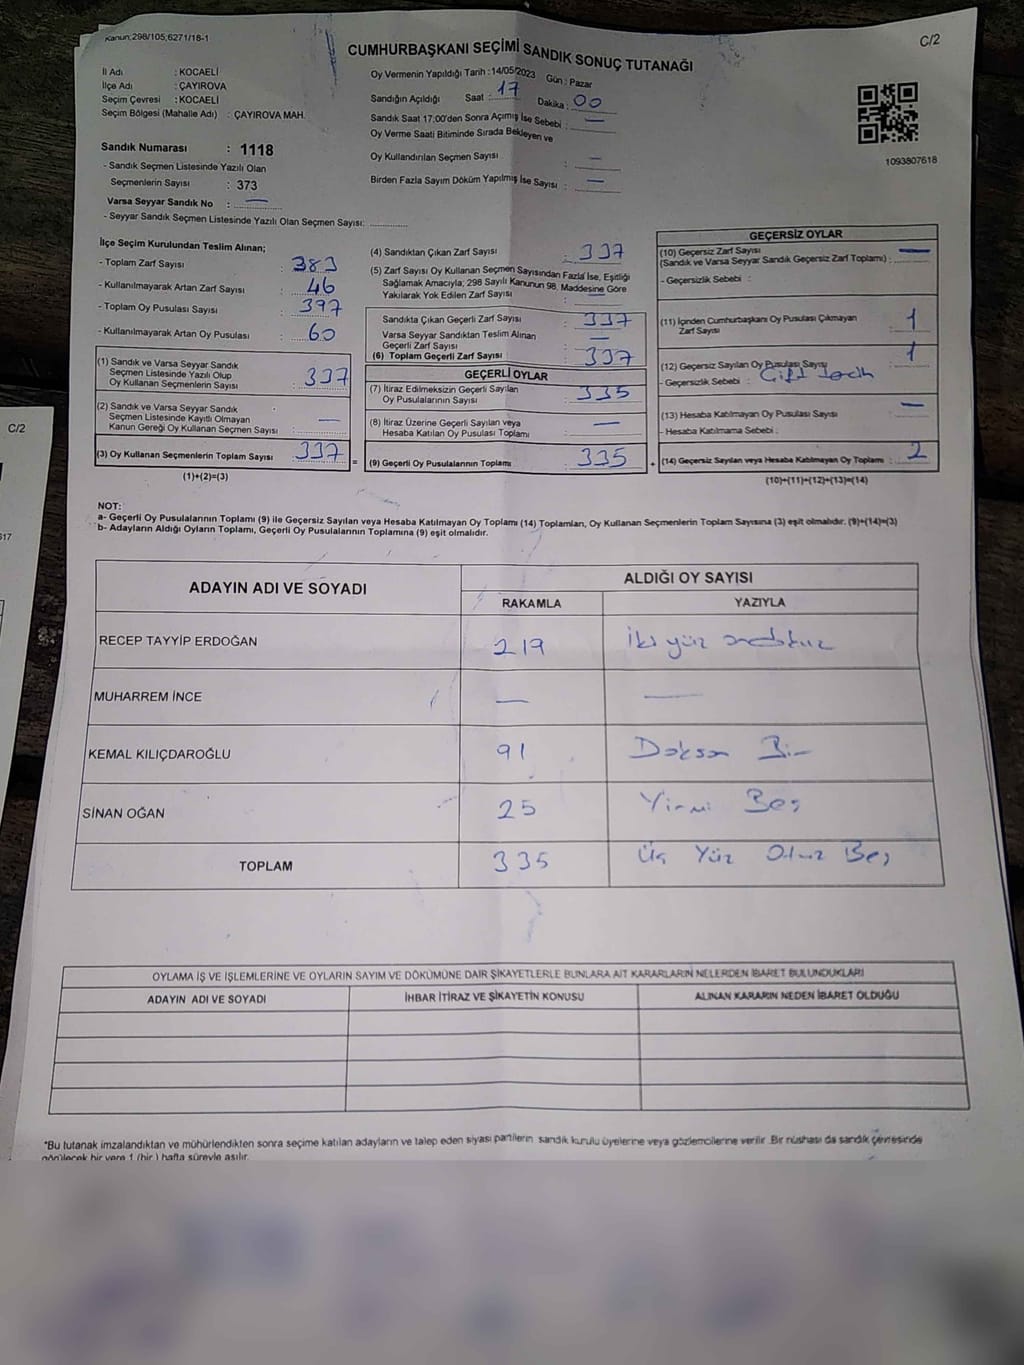 Kanun: 298/105;6271/18-1
C/2
CUMHURBAŞKANI SEÇİMİ SANDIK SONUÇ TUTANAĞI
İl Adı : KOCAELİ
İlçe Adı : ÇAYIROVA
Seçim Çevresi : KOCAELİ
Seçim Bölgesi (Mahalle Adı) : ÇAYIROVA MAH.
Sandık Numarası : 1118
- Sandık Seçmen Listesinde Yazılı Olan
Seçmenlerin Sayısı : 373
Varsa Seyyar Sandık No : —
- Seyyar Sandık Seçmen Listesinde Yazılı Olan Seçmen Sayısı:
Oy Vermenin Yapıldığı Tarih : 14/05/2023 Gün : Pazar
Sandığın Açıldığı Saat : 17 Dakika : 00
Sandık Saat 17:00'den Sonra Açımış İse Sebebi : —
Oy Verme Saati Bitiminde Sırada Bekleyen ve
Oy Kullandırılan Seçmen Sayısı : —
Birden Fazla Sayım Döküm Yapılmış İse Sayısı : —
1093807618
İlçe Seçim Kurulundan Teslim Alınan;
- Toplam Zarf Sayısı : 383
- Kullanılmayarak Artan Zarf Sayısı : 46
- Toplam Oy Pusulası Sayısı : 397
- Kullanılmayarak Artan Oy Pusulası : 60
(1) Sandık ve Varsa Seyyar Sandık
Seçmen Listesinde Yazılı Olup
Oy Kullanan Seçmenlerin Sayısı : 337
(2) Sandık ve Varsa Seyyar Sandık
Seçmen Listesinde Kayıtlı Olmayan
Kanun Gereği Oy Kullanan Seçmen Sayısı : —
(3) Oy Kullanan Seçmenlerin Toplam Sayısı : 337 =
(1)+(2)=(3)
(4) Sandıktan Çıkan Zarf Sayısı : 337
(5) Zarf Sayısı Oy Kullanan Seçmen Sayısından Fazla İse, Eşitliği
Sağlamak Amacıyla; 298 Sayılı Kanunun 98. Maddesine Göre
Yakılarak Yok Edilen Zarf Sayısı : —
Sandıkta Çıkan Geçerli Zarf Sayısı : 337
Varsa Seyyar Sandıktan Teslim Alınan
Geçerli Zarf Sayısı : —
(6) Toplam Geçerli Zarf Sayısı : 337
GEÇERLİ OYLAR
(7) İtiraz Edilmeksizin Geçerli Sayılan
Oy Pusulalarının Sayısı : 335
(8) İtiraz Üzerine Geçerli Sayılan veya
Hesaba Katılan Oy Pusulası Toplamı : —
(9) Geçerli Oy Pusulalarının Toplamı : 335 +
GEÇERSİZ OYLAR
(10) Geçersiz Zarf Sayısı
(Sandık ve Varsa Seyyar Sandık Geçersiz Zarf Toplamı) : —
- Geçersizlik Sebebi :
(11) İçinden Cumhurbaşkanı Oy Pusulası Çıkmayan
Zarf Sayısı : 1
(12) Geçersiz Sayılan Oy Pusulası Sayısı : 1
- Geçersizlik Sebebi : Çift tercih
(13) Hesaba Katılmayan Oy Pusulası Sayısı : —
- Hesaba Katılmama Sebebi :
(14) Geçersiz Sayılan veya Hesaba Katılmayan Oy Toplamı : 2
(10)+(11)+(12)+(13)=(14)
NOT:
a- Geçerli Oy Pusulalarının Toplamı (9) ile Geçersiz Sayılan veya Hesaba Katılmayan Oy Toplamı (14) Toplamları, Oy Kullanan Seçmenlerin Toplam Sayısına (3) eşit olmalıdır. (9)+(14)=(3)
b- Adayların Aldığı Oyların Toplamı, Geçerli Oy Pusulalarının Toplamına (9) eşit olmalıdır.
ADAYIN ADI VE SOYADI
ALDIĞI OY SAYISI
RAKAMLA YAZIYLA
RECEP TAYYİP ERDOĞAN 219 İki yüz ondokuz
MUHARREM İNCE — —
KEMAL KILIÇDAROĞLU 91 Doksan Bir
SİNAN OĞAN 25 Yirmi Beş
TOPLAM 335 Üç Yüz Otuz Beş
OYLAMA İŞ VE İŞLEMLERİNE VE OYLARIN SAYIM VE DÖKÜMÜNE DAİR ŞİKAYETLERLE BUNLARA AİT KARARLARIN NELERDEN İBARET BULUNDUKLARI
ADAYIN ADI VE SOYADI İHBAR İTİRAZ VE ŞİKAYETİN KONUSU ALINAN KARARIN NEDEN İBARET OLDUĞU
*Bu tutanak imzalandıktan ve mühürlendikten sonra seçime katılan adayların ve talep eden siyasi partilerin sandık kurulu üyelerine veya gözlemcilerine verilir. Bir nüshası da sandık çevresinde
görülecek bir yere 1 (bir) hafta süreyle asılır.
C/2
617